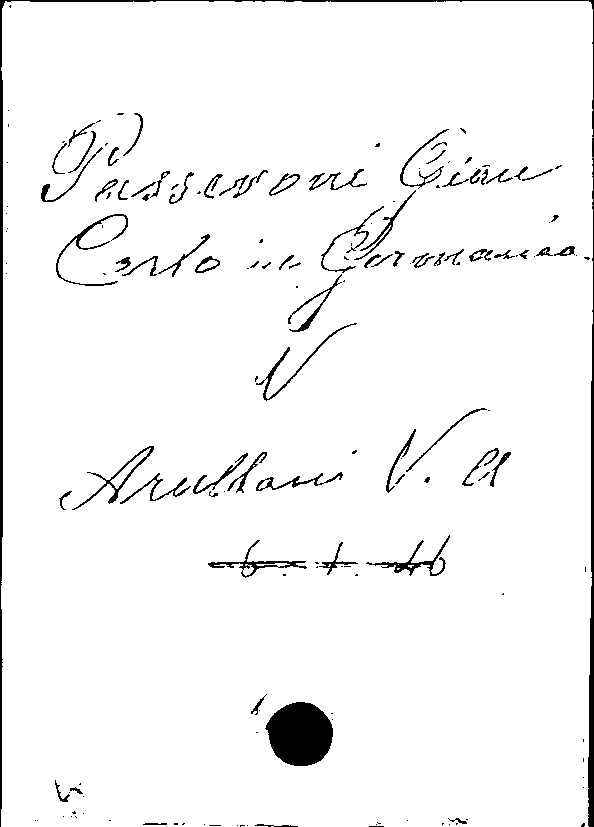 Passeroni Gian
Carlo in Germania.
V
Arullani V. A
6. 1. 46